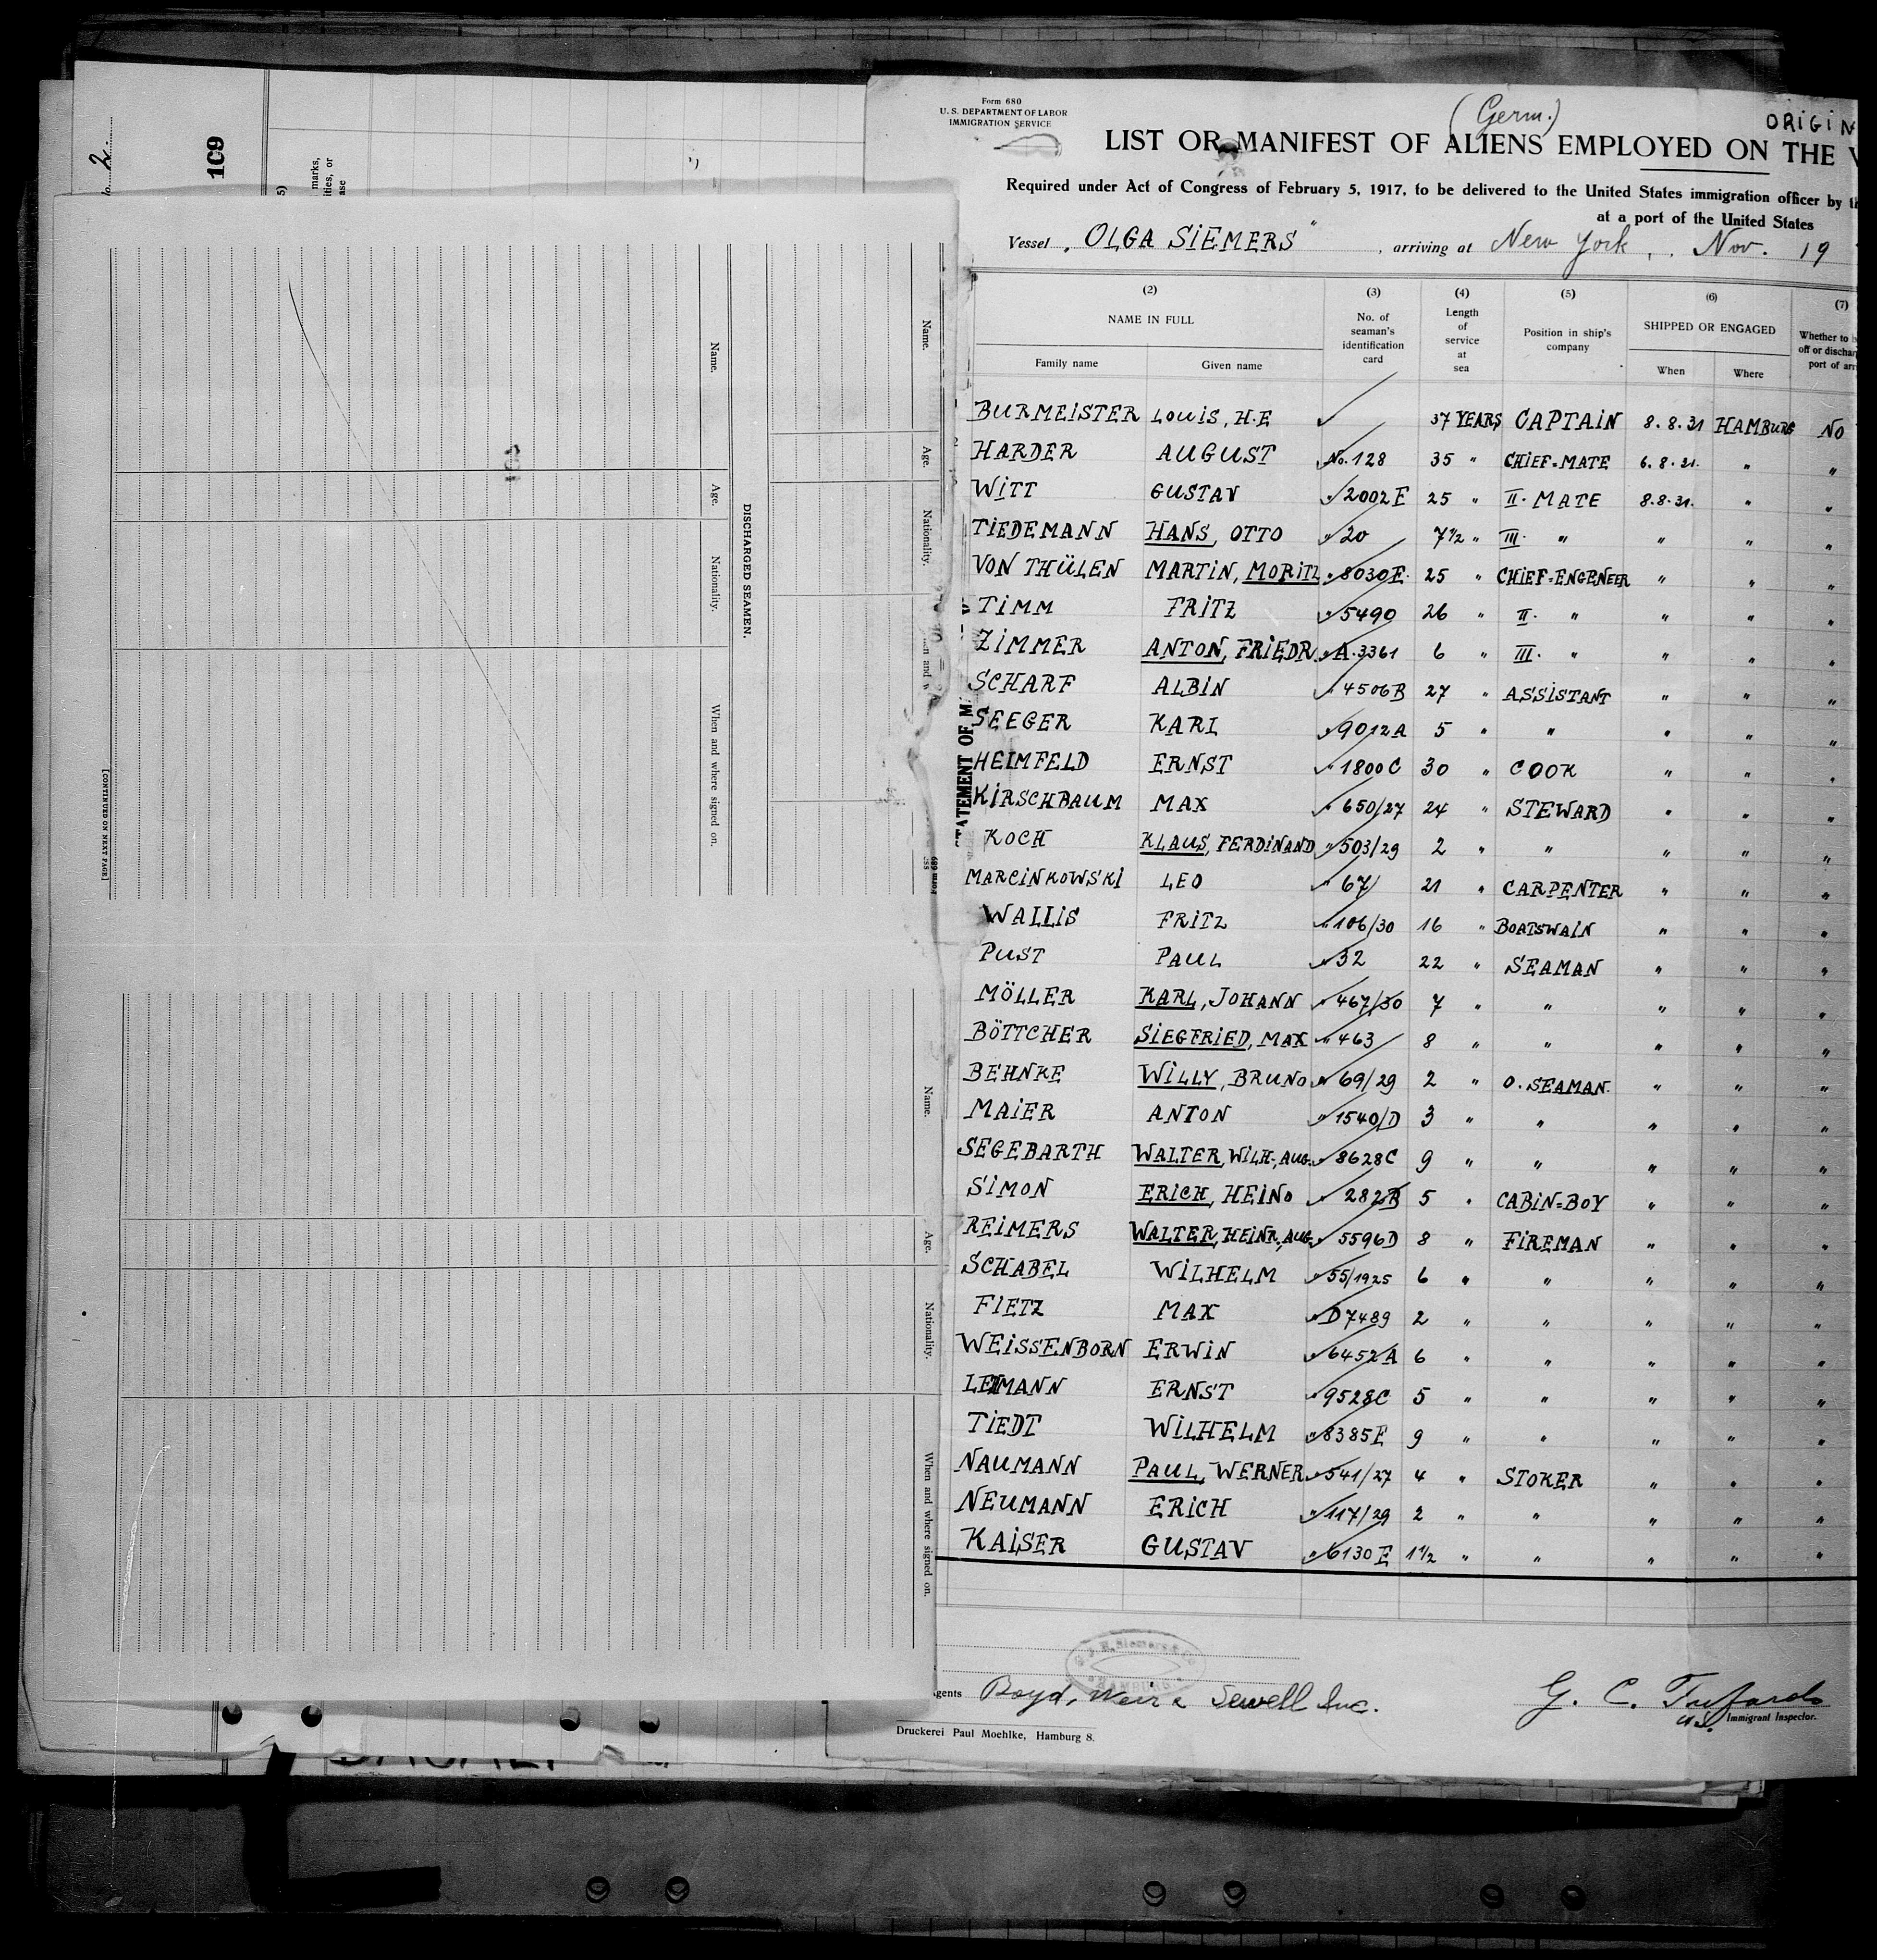 109
2
marks,
Name.
Age.
Nationality.
When and where signed on.
DISCHARGED SEAMEN.
[CONTINUED ON NEXT PAGE]
Name.
Age.
Nationality.
Name.
Age.
Nationality.
When and where signed on.
Form 680
U. S. DEPARTMENT OF LABOR
IMMIGRATION SERVICE
(Germ.)
ORIGIN
LIST OR MANIFEST OF ALIENS EMPLOYED ON THE V
Required under Act of Congress of February 5, 1917, to be delivered to the United States immigration officer by th
at a port of the United States
Vessel „ OLGA SIEMERS " , arriving at New York, Nov. 19
(2) (3) (4) (5) (6) (7)
NAME IN FULL No. of seaman's identification card Length of service at sea Position in ship's company SHIPPED OR ENGAGED Whether to b off or dischar port of arr
Family name Given name When Where
BURMEISTER LOUIS, H.E 37 YEARS CAPTAIN 8.8.31 HAMBURG NO
HARDER AUGUST No. 128 35 " CHIEF-MATE 6.8.31. " "
WITT GUSTAV " 2002E 25 " II. MATE 8.8.31. " "
TIEDEMANN HANS, OTTO " 20 7½ " III. " " " "
VON THÜLEN MARTIN, MORITZ " 8030E. 25 " CHIEF=ENGENEER " " "
TIMM FRITZ " 5490 26 " II. " " " "
ZIMMER ANTON, FRIEDR. " A.3361 6 " III. " " " "
SCHARF ALBIN " 4506B 27 " ASSISTANT " " "
SEEGER KARL " 9012A 5 " " " " "
HEIMFELD ERNST " 1800C 30 " COOK " " "
KIRSCHBAUM MAX " 650/27 24 " STEWARD " " "
KOCH KLAUS, FERDINAND " 503/29 2 " " " " "
MARCINKOWSKI LEO " 67 21 " CARPENTER " " "
WALLIS FRITZ " 106/30 16 " BOATSWAIN " " "
PUST PAUL " 32 22 " SEAMAN " " "
MÖLLER KARL, JOHANN " 467/30 7 " " " " "
BÖTTCHER SIEGFRIED, MAX " 463 8 " " " " "
BEHNKE WILLY, BRUNO " 69/29 2 " O. SEAMAN. " " "
MAIER ANTON " 1540/D 3 " " " " "
SEGEBARTH WALTER, WILH., AUG. " 8628C 9 " " " " "
SIMON ERICH, HEINO " 282B 5 " CABIN=BOY " " "
REIMERS WALTER, HEINR., AUG. " 5596D 8 " FIREMAN " " "
SCHABEL WILHELM " 55/1925 6 " " " " "
FIETZ MAX " D7489 2 " " " " "
WEISSENBORN ERWIN " 6452A 6 " " " " "
ERNST " 9528C 5 " " " " "
TIEDT WILHELM " 8385E 9 " " " " "
NAUMANN PAUL, WERNER " 541/27 4 " STOKER " " "
NEUMANN ERICH " 117/29 2 " " " " "
KAISER GUSTAV " 6130E 1½ " " " " "
gents Boyd, Weir & Sewell Inc.
G. C.
Immigrant Inspector.
Druckerei Paul Moehlke, Hamburg 8.